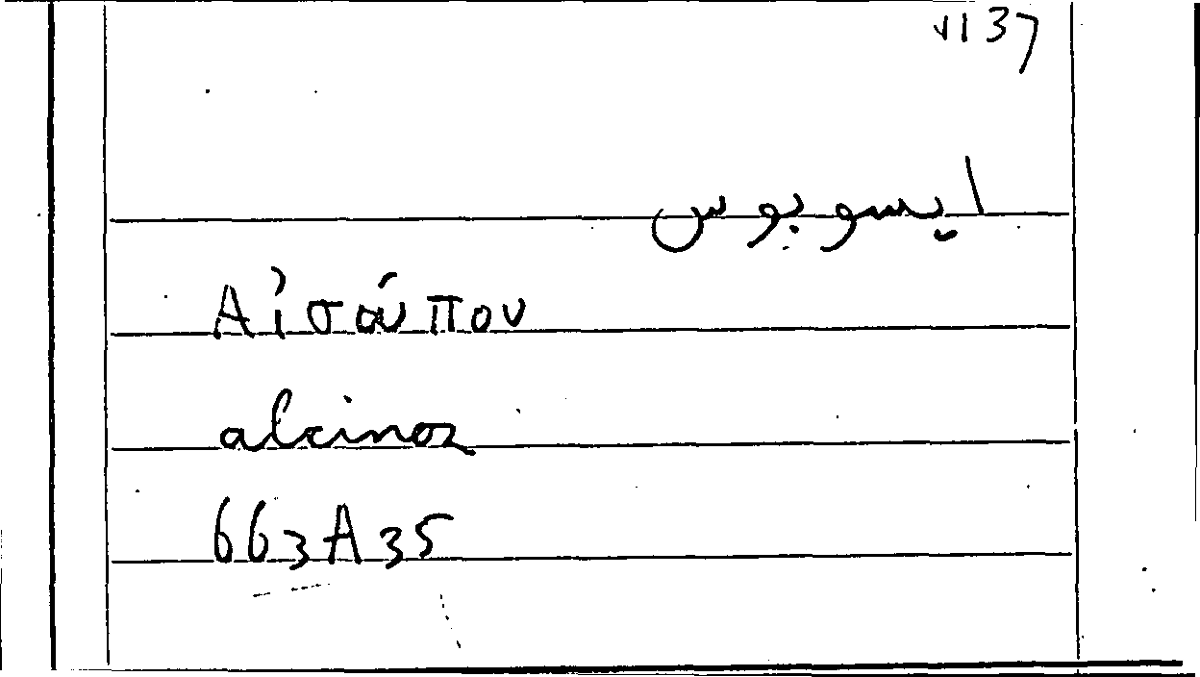 V137
ايسوبوس
Αἰσούπου
alcinoz
663A35